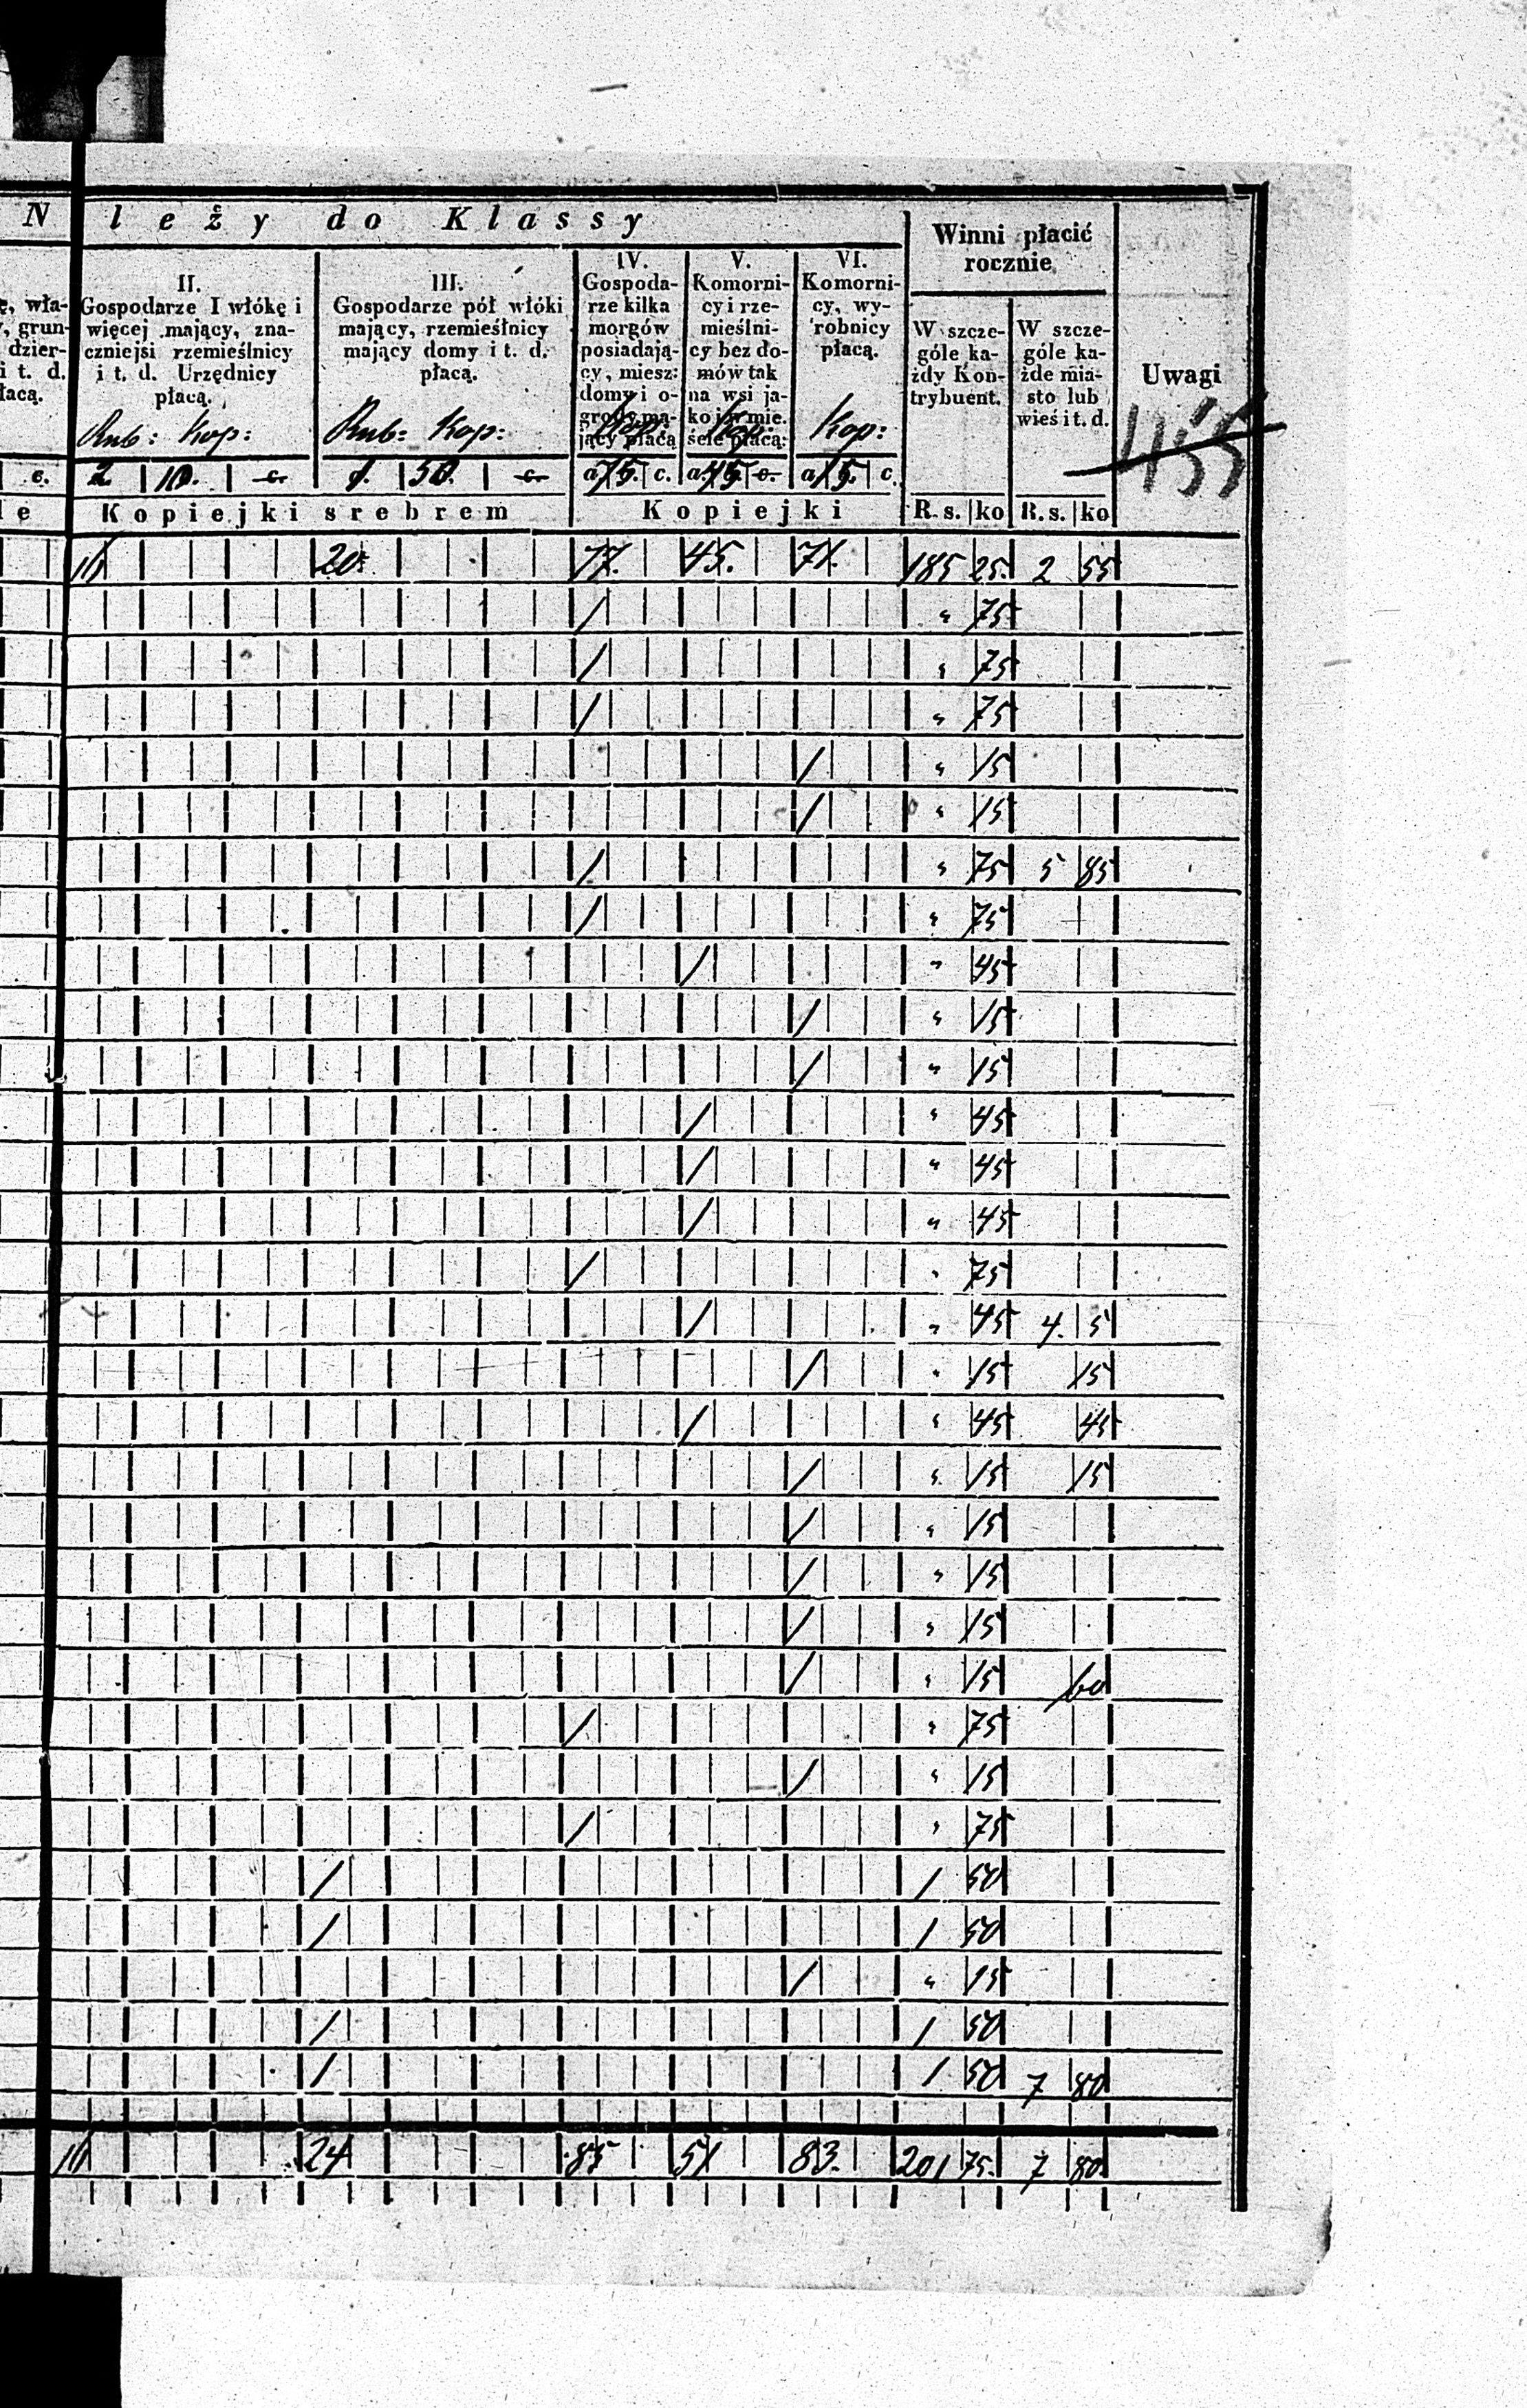 N leży do Klassy
Winni płacić
rocznie
Uwagi
ę, wła-
, grun-
dzier-
i t. d.
łacą.
II.
Gospodarze I włókę i
więcej mający, zna-
czniejsi rzemieślnicy
i t. d. Urzędnicy
płacą.
Rub: Kop:
III.
Gospodarze pół włóki
mający, rzemieślnicy
mający domy i t. d.
płacą.
Rub: Kop:
IV.
Gospoda-
rze kilka
morgów
posiadają-
cy, miesz:
domy i o-
grody ma-
jący płacą
Kop:
V.
Komorni-
cy i rze-
mieślni-
cy bez do-
mów tak
na wsi ja-
ko i w mie-
ście płacą:
Kop:
VI.
Komorni-
cy, wy-
robnicy
płacą.
Kop:
W szcze-
góle ka-
żdy Kon-
trybuent.
W szcze-
góle ka-
żde mia-
sto lub
wieś i t. d.
455
c. 2 10. c. 1. 50. c. a 75. c. a 45. c. a 15. c.
le Kopiejki srebrem Kopiejki R. s. ko R. s. ko
16 20. 77. 45. 71. 185 25. 2 55
/ " 75
/ " 75
/ " 75
/ " 15
/ " 15
/ " 75 5 85
/ " 75
/ " 45
/ " 15
/ " 15
/ " 45
/ " 45
/ " 45
/ " 75
/ " 45 4. 5
/ " 15 15
/ " 45 45
/ " 15 15
/ " 15
/ " 15
/ " 15
/ " 15 60
/ " 75
/ " 15
/ " 75
/ 1 50
/ 1 50
/ " 15
/ 1 50
/ 1 50 7 80
16 24 85 51 83. 201 75. 7 80